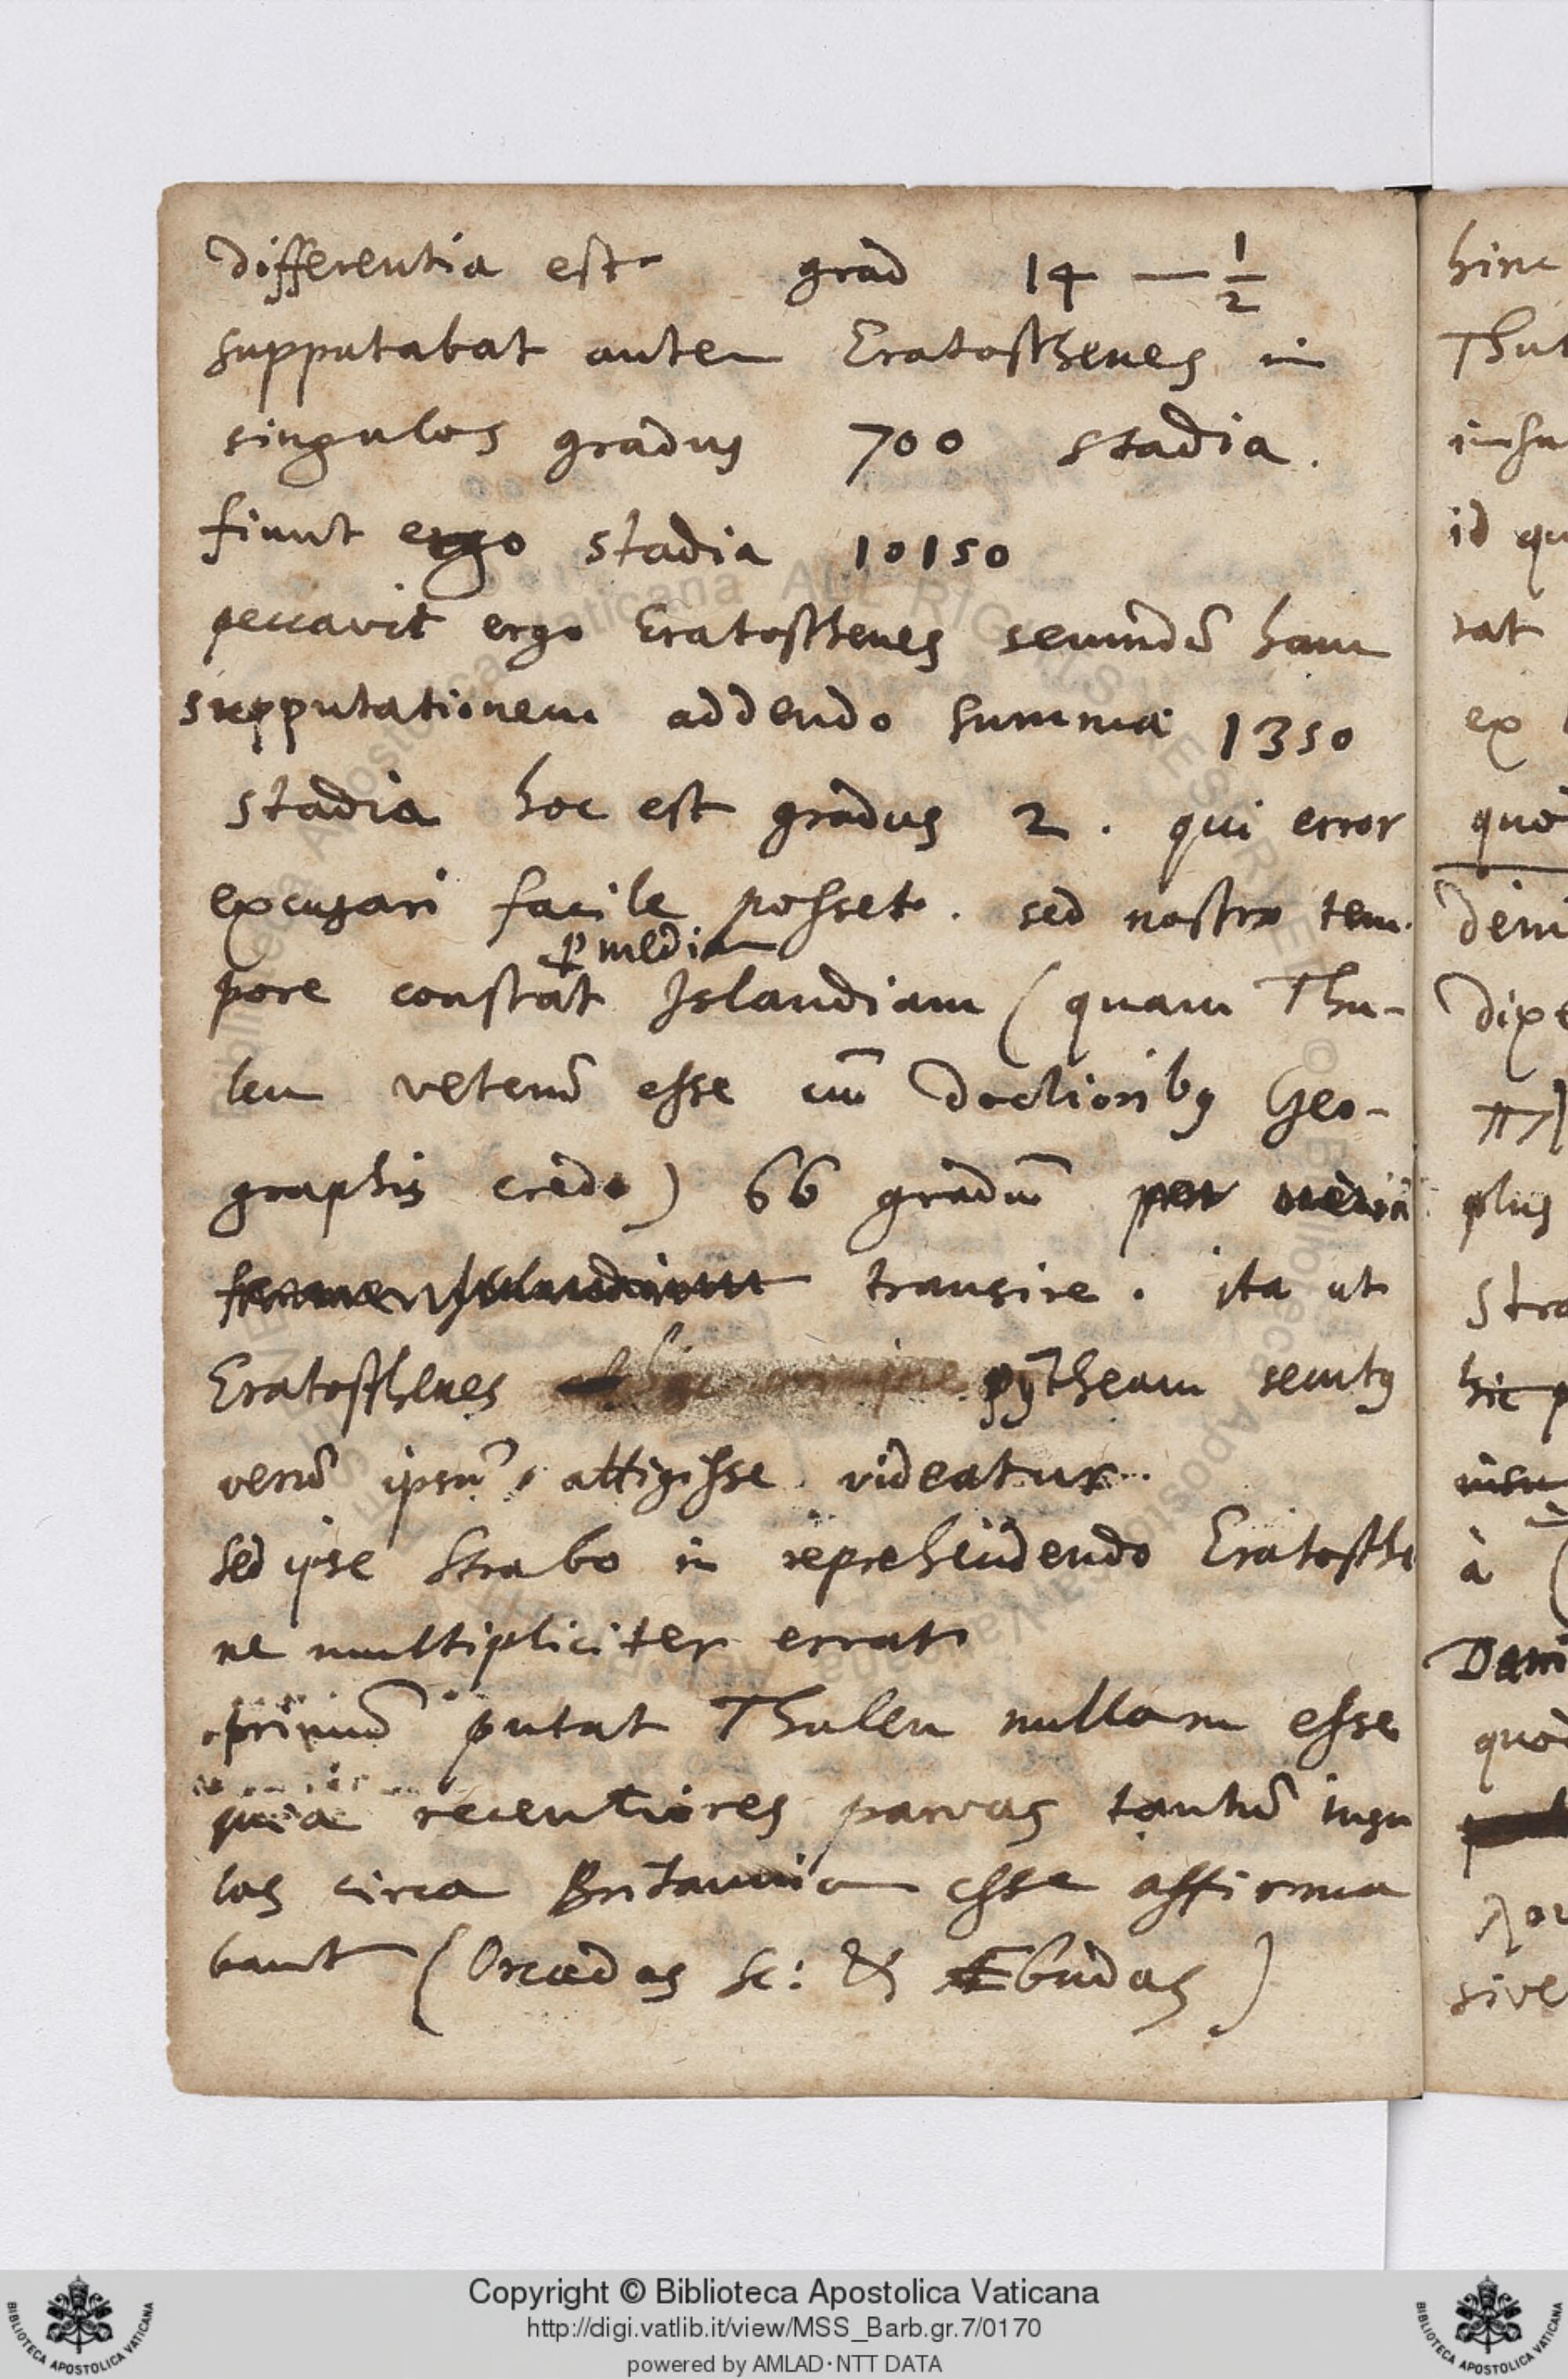 differentia est grad 14 — 1/2
supputabat autem Eratosthenes in
singulos gradus 700 stadia.
fiunt ergo stadia 10150
peccavit ergo Eratosthenes secundũ hanc
supputationem addendo summa 1350
stadia hoc est gradus 2. qui error
excusari facile posset. sed nostro tem-
ꝑ mediam
pore constat Islandiam (quam Thu-
len veterũ esse cũ doctioribꝰ Geo-
graphis credo) 66 gradũ per mediã
Islandiam transire. ita ut
Eratosthenes pÿtheam secutꝰ
verũ ipsũ attigisse videatur.
sed ipse Strabo in reprehendendo Eratosthe
ne multipliciter errat
primũ putat Thulen nullam esse
quia recentiores parvas tantũ insu
las circa Britanniam esse affirma
bant (Orcadas sc: & Ebudas)
hinc
Thul
insu
id qu
rat
ex
quò
deni
dixe
πλ
plus
Stra
hic p
insu
à (
Dani
quòd
λον
sive
Copyright © Biblioteca Apostolica Vaticana
http://digi.vatlib.it/view/MSS_Barb.gr.7/0170
powered by AMLAD·NTT DATA
BIBLIOTECA APOSTOLICA VATICANA
BIBLIOTECA APOSTOLICA VATICANA